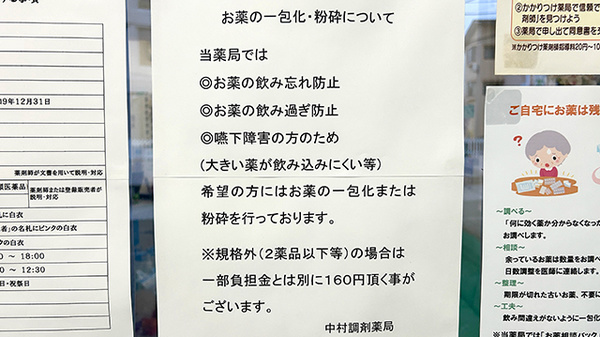 する事項
19年12月31日
薬剤師が文書を用いて説明・対応
類医薬品
薬剤師または登録販売者が
説明・対応
に白衣
者」の名札にピンクの白衣
クの白衣
0 ～ 18:00
0 ～ 12:30
日・祝祭日
お薬の一包化・粉砕について
当薬局では
◎お薬の飲み忘れ防止
◎お薬の飲み過ぎ防止
◎嚥下障害の方のため
(大きい薬が飲み込みにくい等)
希望の方にはお薬の一包化または
粉砕を行っております。
※規格外(2薬品以下等)の場合は
一部負担金とは別に160円頂く事が
ございます。
中村調剤薬局
②かかりつけ薬局で信頼で
剤師」を見つけよう
③薬局で申し出て同意書を
※かかりつけ薬剤師指導料20円～10
ご自宅にお薬は残
?
?
～調べる～
「何に効く薬か分からなくなった
お調べします。
～相談～
余っているお薬は数量をお調べ
日数調整を医師に連絡します。
～整理～
期限が切れた古いお薬、不要に
～工夫～
飲み間違えがないように一包化
※当薬局では「お薬相談バック」